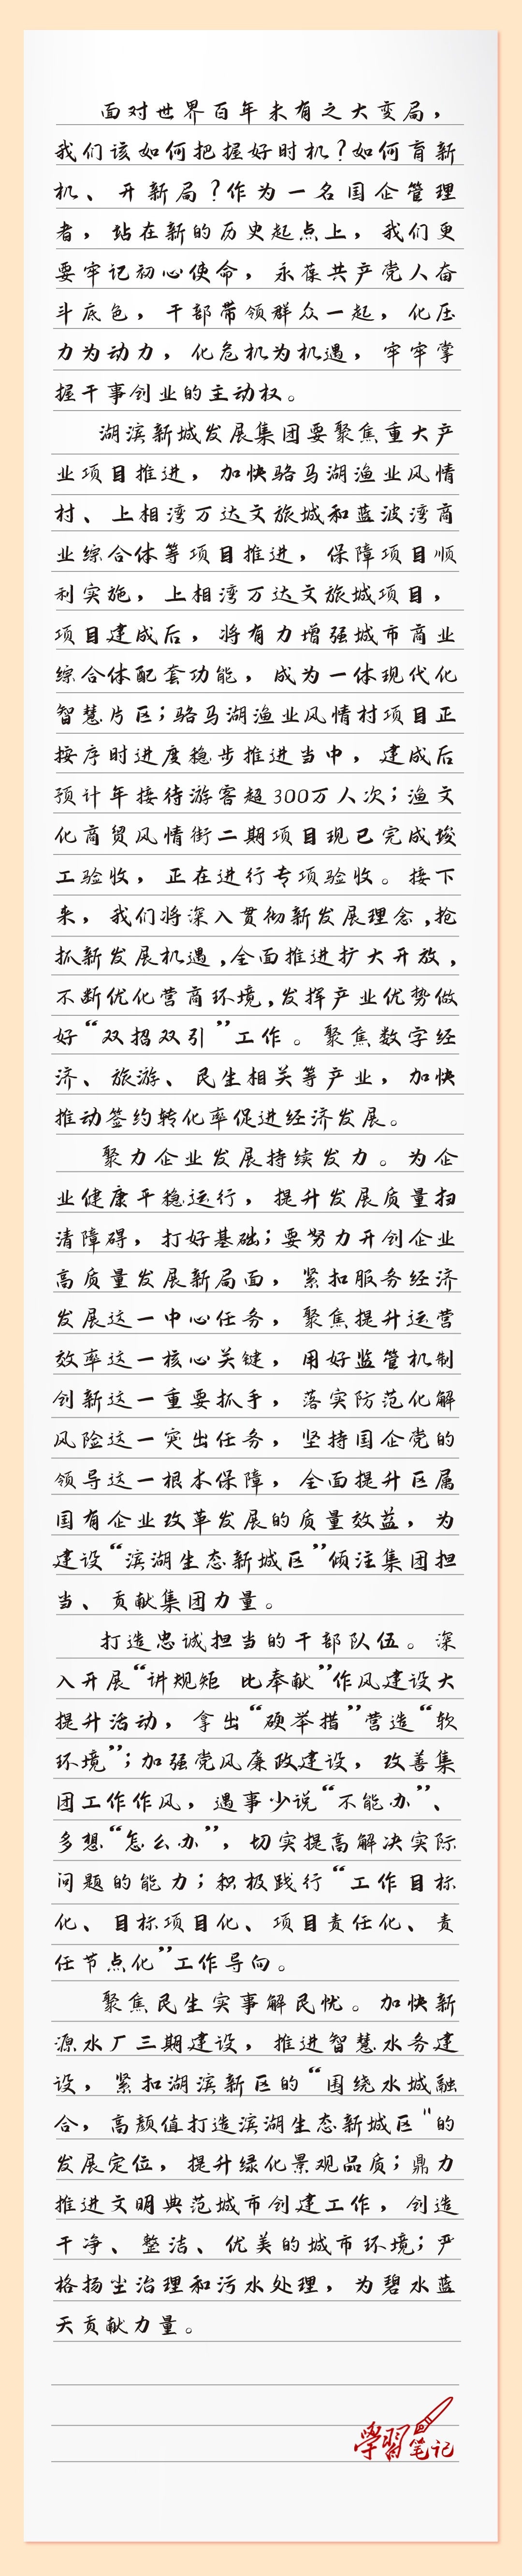 面对世界百年未有之大变局，
我们该如何把握好时机？如何育新
机、开新局？作为一名国企管理
者，站在新的历史起点上，我们更
要牢记初心使命，永葆共产党人奋
斗底色，干部带领群众一起，化压
力为动力，化危机为机遇，牢牢掌
握干事创业的主动权。
湖滨新城发展集团要聚焦重大产
业项目推进，加快骆马湖渔业风情
村、上相湾万达文旅城和蓝波湾商
业综合体等项目推进，保障项目顺
利实施，上相湾万达文旅城项目，
项目建成后，将有力增强城市商业
综合体配套功能，成为一体现代化
智慧片区；骆马湖渔业风情村项目正
按序时进度稳步推进当中，建成后
预计年接待游客超300万人次；渔文
化商贸风情街二期项目现已完成竣
工验收，正在进行专项验收。接下
来，我们将深入贯彻新发展理念，抢
抓新发展机遇，全面推进扩大开放，
不断优化营商环境，发挥产业优势做
好“双招双引”工作。聚焦数字经
济、旅游、民生相关等产业，加快
推动签约转化率促进经济发展。
聚力企业发展持续发力。为企
业健康平稳运行，提升发展质量扫
清障碍，打好基础；要努力开创企业
高质量发展新局面，紧扣服务经济
发展这一中心任务，聚焦提升运营
效率这一核心关键，用好监管机制
创新这一重要抓手，落实防范化解
风险这一突出任务，坚持国企党的
领导这一根本保障，全面提升区属
国有企业改革发展的质量效益，为
建设“滨湖生态新城区”倾注集团担
当、贡献集团力量。
打造忠诚担当的干部队伍。深
入开展“讲规矩 比奉献”作风建设大
提升活动，拿出“硬举措”营造“软
环境”；加强党风廉政建设，改善集
团工作作风，遇事少说“不能办”、
多想“怎么办”，切实提高解决实际
问题的能力；积极践行“工作目标
化、目标项目化、项目责任化、责
任节点化”工作导向。
聚焦民生实事解民忧。加快新
源水厂三期建设，推进智慧水务建
设，紧扣湖滨新区的“围绕水城融
合，高颜值打造滨湖生态新城区"的
发展定位，提升绿化景观品质；鼎力
推进文明典范城市创建工作，创造
干净、整洁、优美的城市环境；严
格扬尘治理和污水处理，为碧水蓝
天贡献力量。
學習笔记